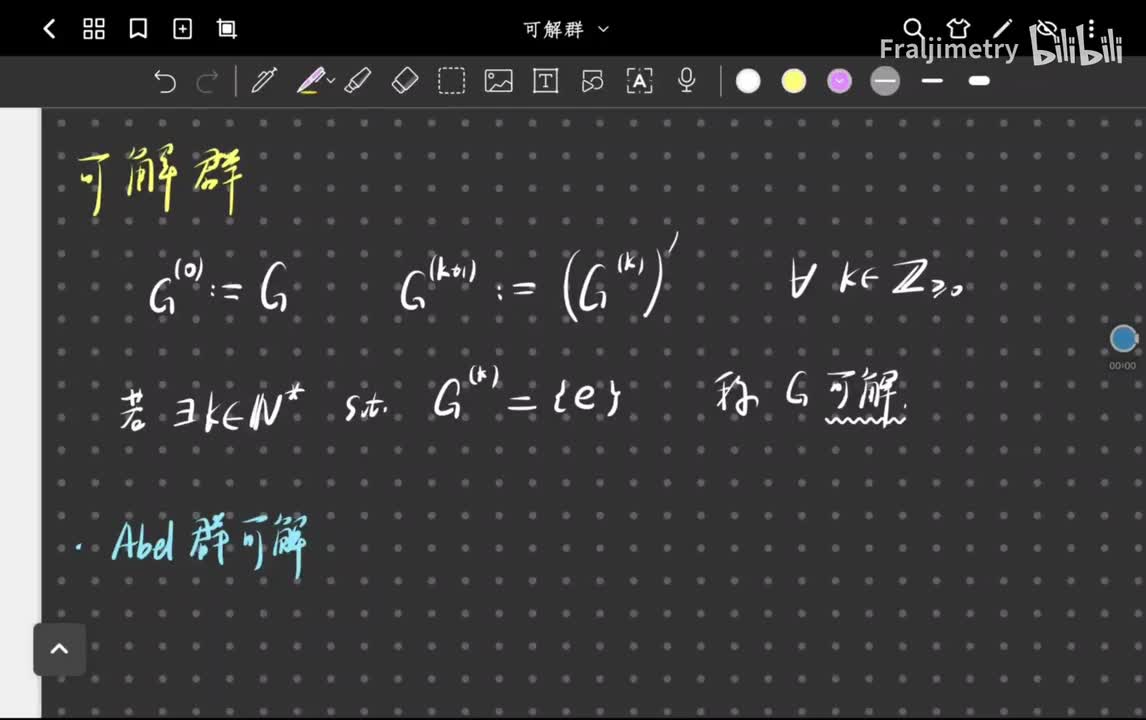 可解群
Fraljimetry bilibili
T A
00:00
可解群
G^{(0)} := G G^{(k+1)} := (G^{(k)})' ∀ k∈ℤ_{≥0}
若 ∃k∈ℕ* s.t. G^{(k)} = {e} 称 G 可解.
· Abel 群可解